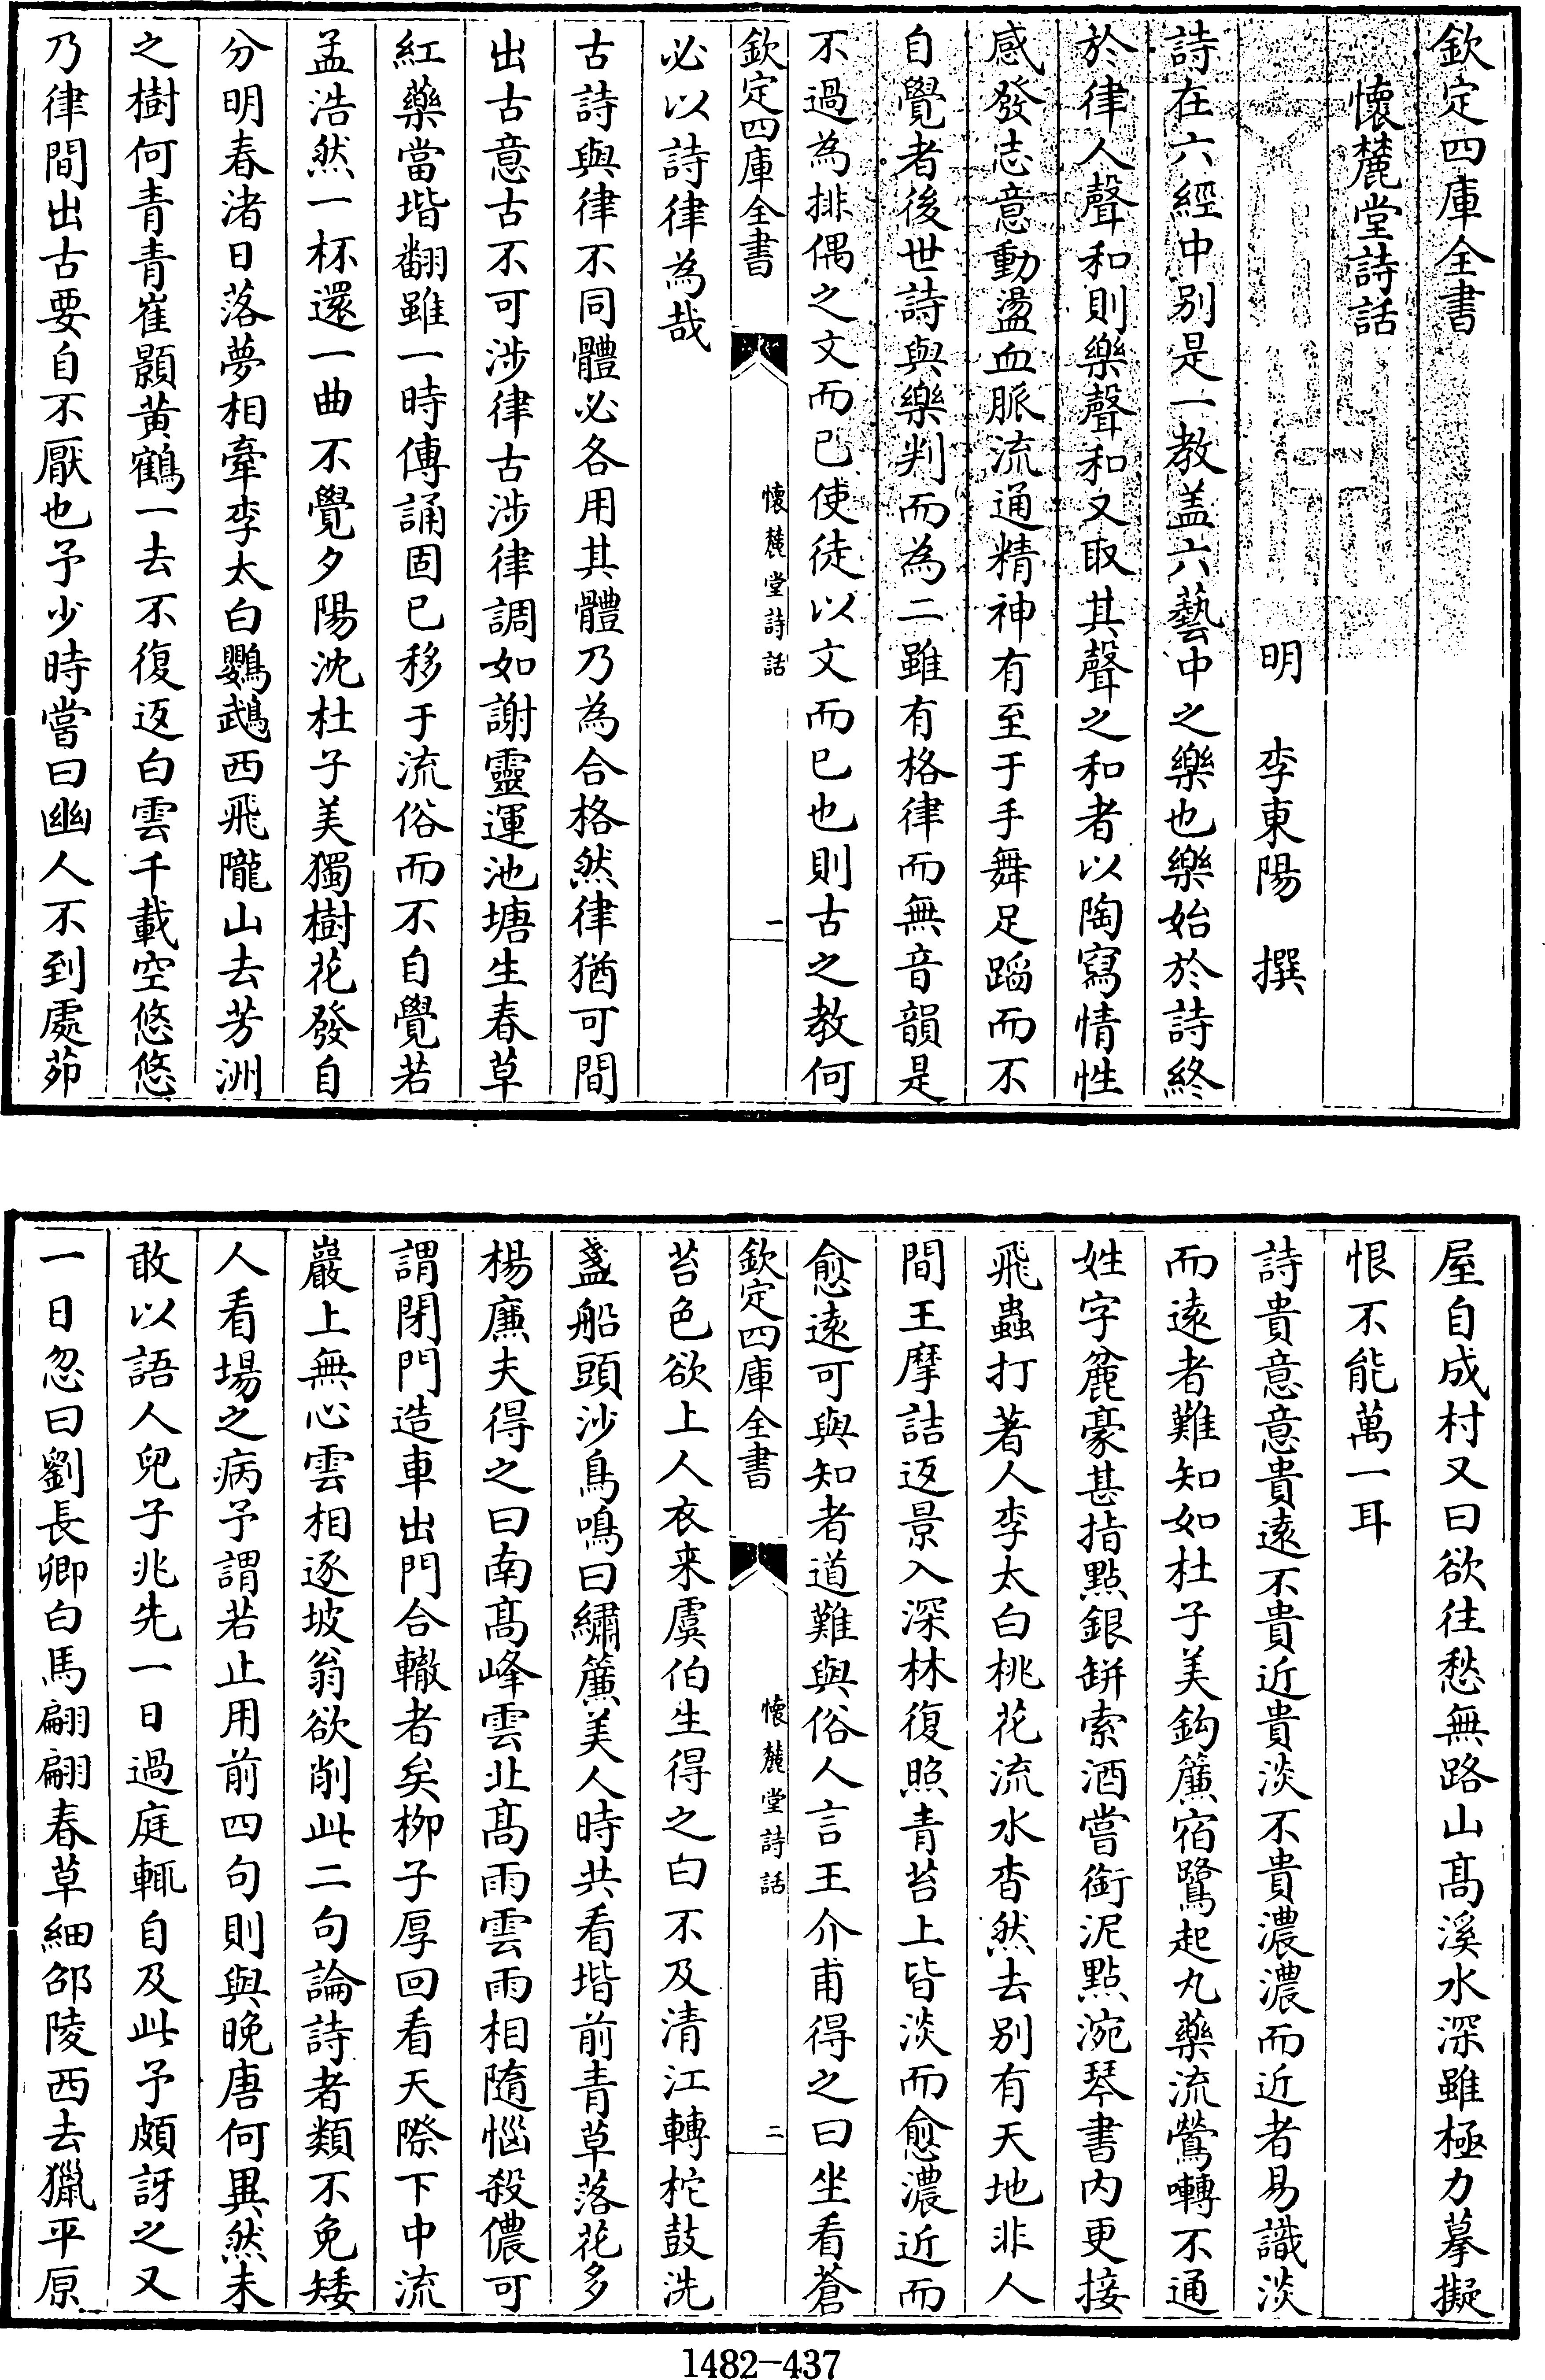 欽定四庫全書
懷麓堂詩話
明 李東陽 撰
詩在六經中别是一教盖六藝中之樂也樂始於詩終
於律人聲和則樂聲和又取其聲之和者以陶寫情性
感發志意動盪血脈流通精神有至于手舞足蹈而不
自覺者後世詩與樂判而為二雖有格律而無音韻是
不過為排偶之文而已使徒以文而已也則古之教何
欽定四庫全書 懷麓堂詩話 一
必以詩律為哉
古詩與律不同體必各用其體乃為合格然律猶可間
出古意古不可涉律古涉律調如謝靈運池塘生春草
紅藥當堦翻雖一時傳誦固已移于流俗而不自覺若
孟浩然一杯還一曲不覺夕陽沈杜子美獨樹花發自
分明春渚日落夢相牽李太白鸚鵡西飛隴山去芳洲
之樹何青青崔顥黄鶴一去不復返白雲千載空悠悠
乃律間出古要自不厭也予少時嘗曰幽人不到處茆
屋自成村又曰欲往愁無路山髙溪水深雖極力摹擬
恨不能萬一耳
詩貴意意貴遠不貴近貴淡不貴濃濃而近者易識淡
而遠者難知如杜子美鈎簾宿鷺起丸藥流鶯囀不通
姓字麄豪甚指點銀缾索酒嘗銜泥點涴琴書内更接
飛蟲打著人李太白桃花流水杳然去别有天地非人
間王摩詰返景入深林復照青苔上皆淡而愈濃近而
愈遠可與知者道難與俗人言王介甫得之曰坐看蒼
欽定四庫全書 懷麓堂詩話 二
苔色欲上人衣来虞伯生得之曰不及清江轉柁鼓洗
盞船頭沙鳥鳴曰繡簾美人時共看堦前青草落花多
楊廉夫得之曰南髙峰雲北髙雨雲雨相隨惱殺儂可
謂閉門造車出門合轍者矣柳子厚回看天際下中流
巖上無心雲相逐坡翁欲削此二句論詩者類不免矮
人看場之病予謂若止用前四句則與晚唐何異然未
敢以語人兒子兆先一日過庭輒自及此予頗訝之又
一日忽曰劉長卿白馬翩翩春草細邵陵西去獵平原
1482-437